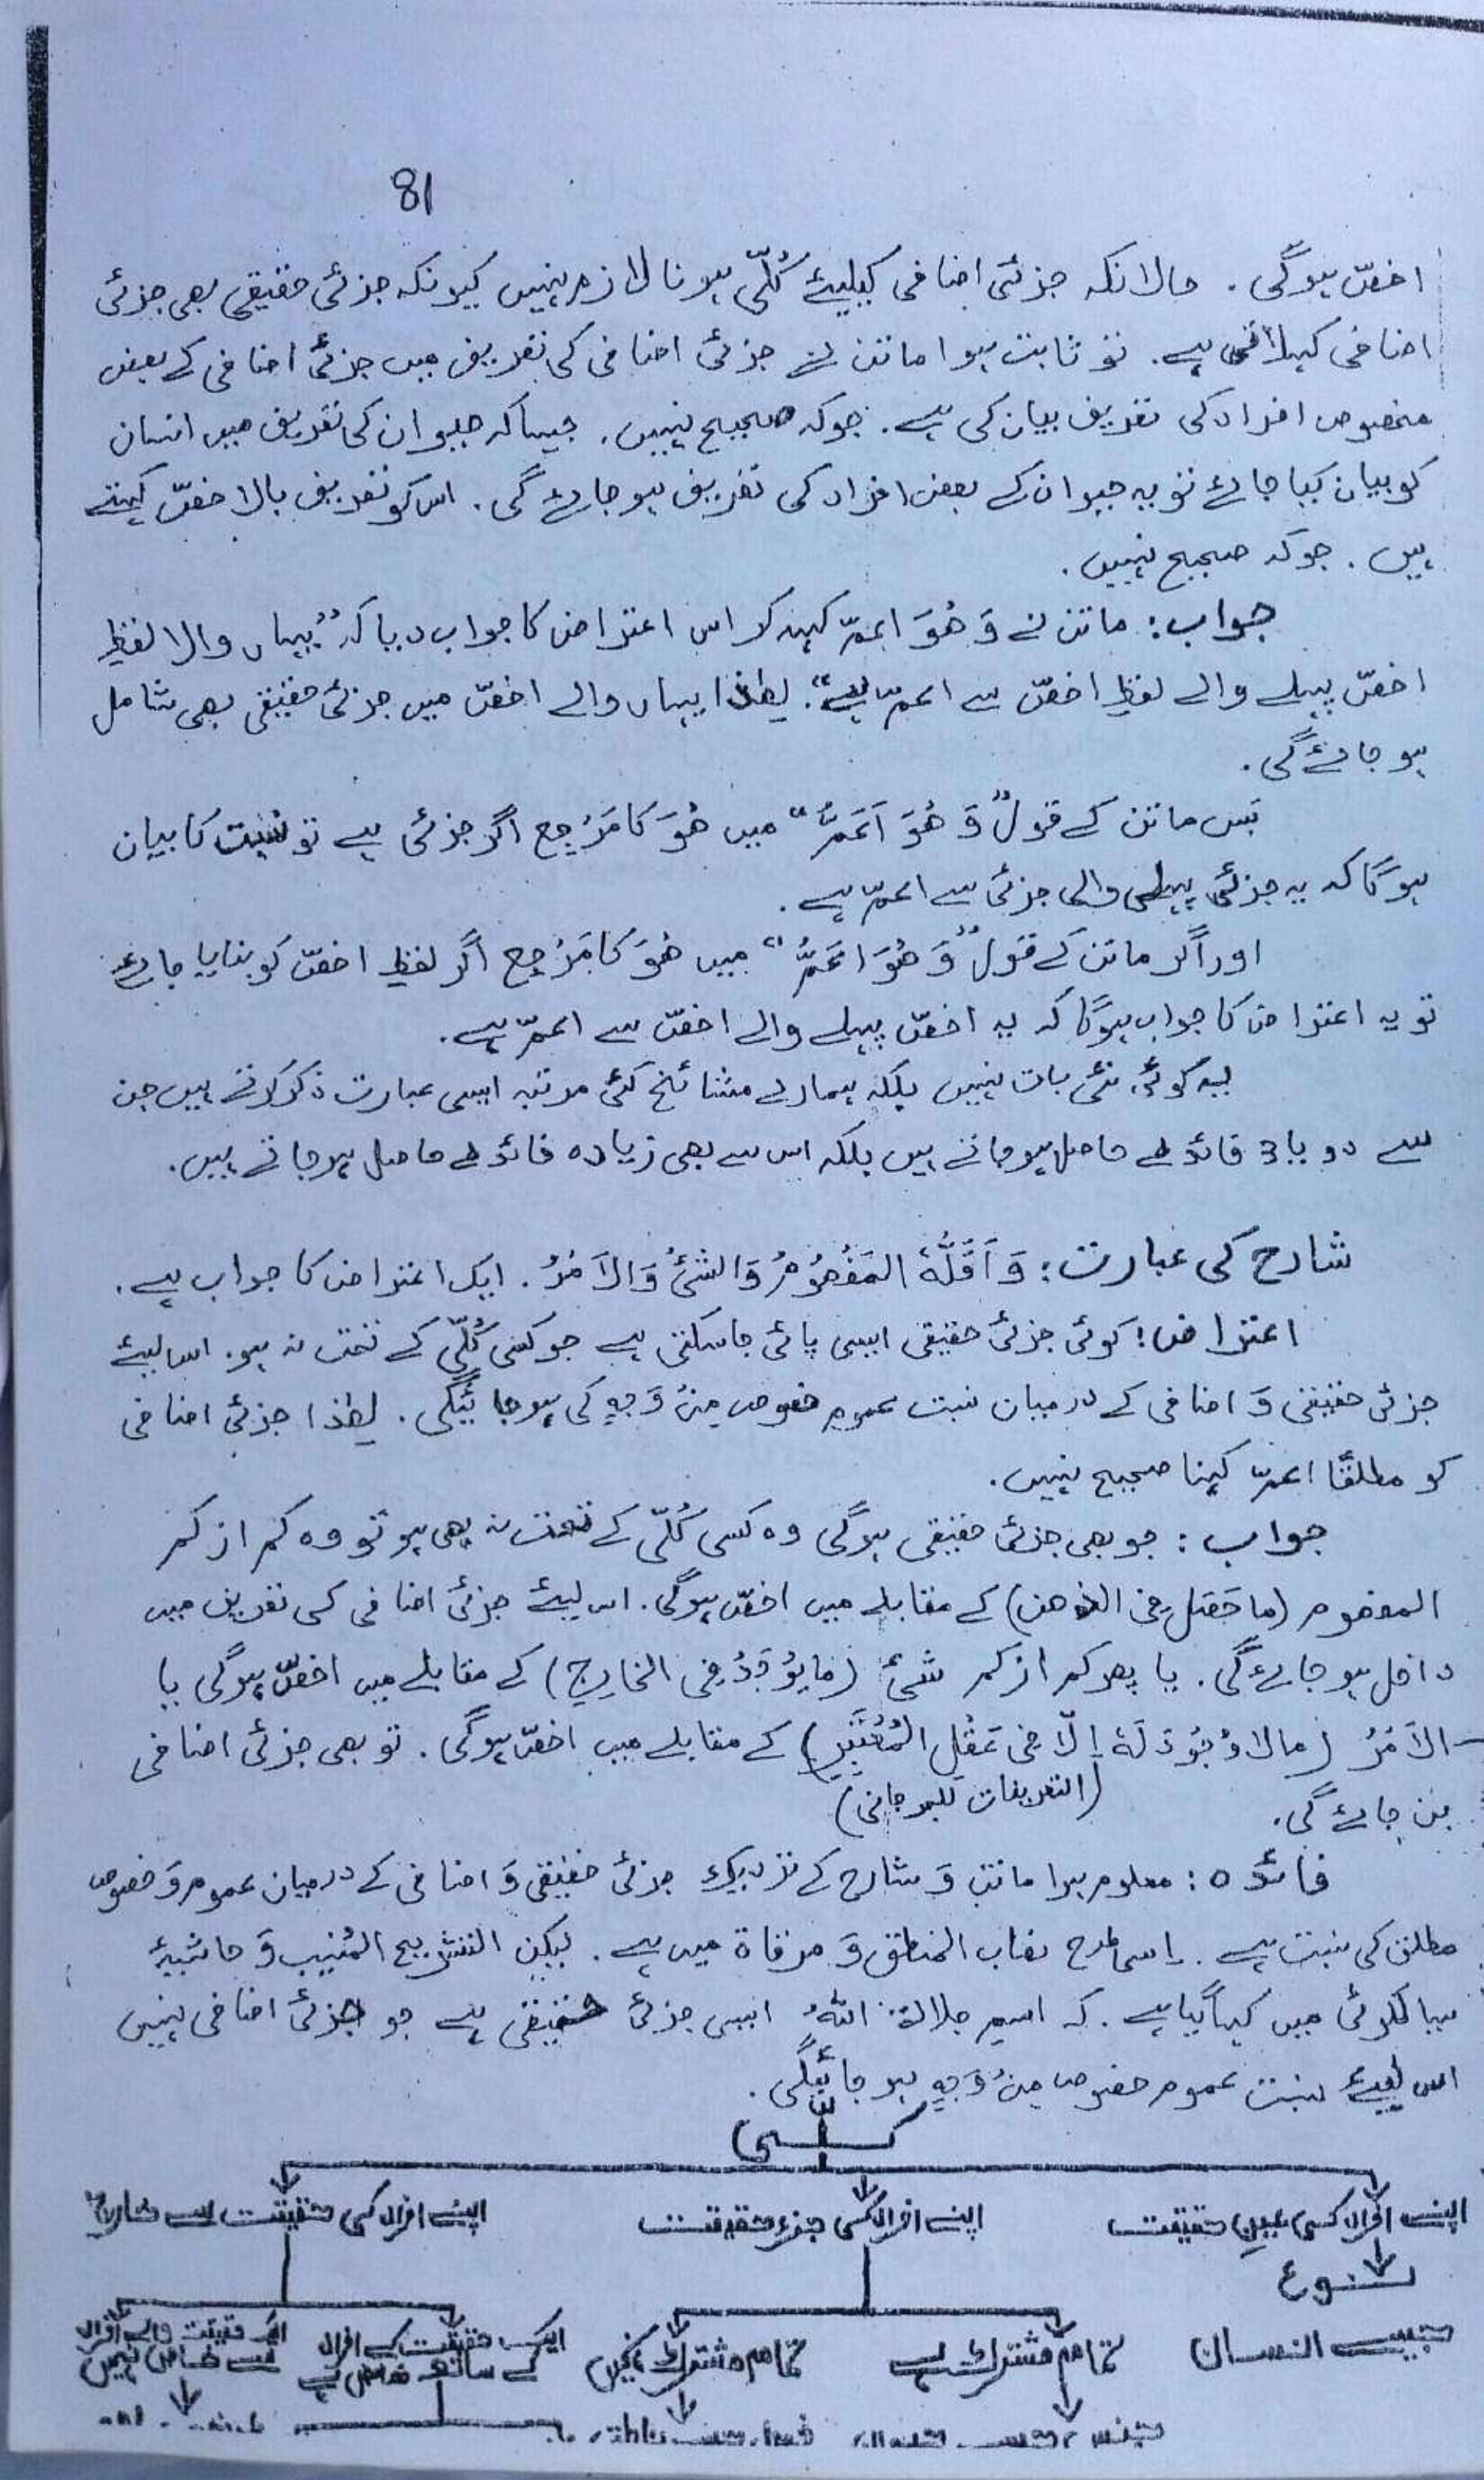 81
اخصّ ہوگی۔ حالانکہ جزئی اضافی کیلیئے کُلّی ہونا لازم نہیں کیونکہ جزئی حقیقی بھی جزئی
اضافی کہلاتی ہے۔ تو ثابت ہوا ماتن نے جزئی اضافی کی تعریف میں جزئی اضافی کے بعض
مخصوص افراد کی تعریف بیان کی ہے۔ جوکہ صحیح نہیں۔ جیساکہ حیوان کی تعریف میں انسان
کو بیان کیا جائے تو یہ حیوان کے بعض افراد کی تعریف ہو جائے گی۔ اس کو تعریف بالاخصّ کہتے
ہیں۔ جوکہ صحیح نہیں۔
جواب: ماتن نے وَ ھُوَ اعمّ کہہ کر اس اعتراض کا جواب دیا کہ ”یہاں والا لفظِ
اخصّ پہلے والے لفظِ اخصّ سے اعمّ ہے“۔ لھٰذا یہاں والے اخصّ میں جزئی حقیقی بھی شامل
ہو جائے گی۔
بَس ماتن کے قول ”وَ ھُوَ اَعَمُّ“ میں ھُوَ کا مَرْجِع اگر جزئی ہے تو نسبت کا بیان
ہوگا کہ یہ جزئی پہلی والی جزئی سے اعمّ ہے۔
اور اگر ماتن کے قول ”وَ ھُوَ اعَمُّ“ میں ھُوَ کا مَرْجِع اگر لفظِ اخصّ کو بنایا جائے
تو یہ اعتراض کا جواب ہوگا کہ یہ اخصّ پہلے والے اخصّ سے اعمّ ہے۔
یہ کوئی نئی بات نہیں بلکہ ہمارے مشائخ کئی مرتبہ ایسی عبارت ذکر کرتے ہیں جن
سے دو یا 3 فائدے حاصل ہو جاتے ہیں بلکہ اس سے بھی زیادہ فائدے حاصل ہو جاتے ہیں۔
شارح کی عبارت: وَ اَقَلُّهٗ المَفْھُوْمُ وَ الشَّیْءُ وَ الاَمْرُ۔ ایک اعتراض کا جواب ہے۔
اعتراض: کوئی جزئی حقیقی ایسی پائی جا سکتی ہے جو کسی کُلّی کے تحت نہ ہو۔ اس لیئے
جزئی حقیقی وَ اضافی کے درمیان نسبت عموم خصوص مِنْ وَجہٍ کی ہو جائیگی۔ لھٰذا جزئی اضافی
کو مطلقًا اعمّ کہنا صحیح نہیں۔
جواب: جو بھی جزئی حقیقی ہوگی وہ کسی کُلّی کے تحت نہ بھی ہو تو وہ کم از کم
المفھوم (ما حَصَلَ فِی الذھن) کے مقابلے میں اخصّ ہوگی۔ اس لیئے جزئی اضافی کی تعریف میں
داخل ہو جائے گی۔ یا پھر کم از کم شیٔ (مَا یُوْجَدُ فِی الخَارِجِ) کے مقابلے میں اخصّ ہوگی یا
الاَمْرُ (مالا وُجُوْدَ لَهٗ اِلّا فِی عَقْلِ المُعْتَبِرِ) کے مقابلے میں اخصّ ہوگی۔ تو بھی جزئی اضافی
(التعریفات للجرجانی)
بن جائے گی۔
فائدہ: معلوم ہوا ماتن وَ شارح کے نزدیک جزئی حقیقی وَ اضافی کے درمیان عموم وَ خصوص
مطلق کی نسبت ہے۔ اسی طرح نصاب المنطق وَ مرقاۃ میں ہے۔ لیکن التشریح المُنِیب وَ حاشیۂ
سیالکوٹی میں کہا گیا ہے۔ کہ اسمِ جلالۃ اللّٰہُ ایسی جزئی حقیقی ہے جو جزئی اضافی نہیں
اس لیئے نسبت عموم خصوص مِنْ وَجہٍ ہو جائیگی۔
اپنے افراد کی عینِ حقیقت
اپنے افراد کی جزءِ حقیقت
اپنے افراد کی حقیقت سے خارج
نوع
جیسے انسان
تمام مشترک ہے
تمام مشترک نہیں
ایک حقیقت کے افراد کے ساتھ خاص ہے
ایک حقیقت والے افراد سے خاص نہیں